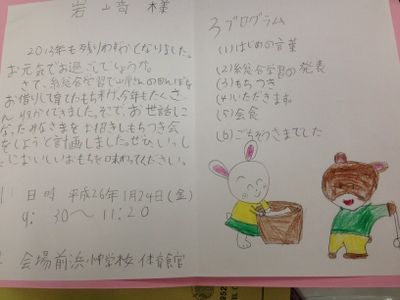 岩崎 様
2013年も残りわずかとなりました。
お元気でお過ごしでしょうか。
さて、総合学習で山岸さんの田んぼを
お借りして育てたもち米が、今年もたくさ
ん収かくできました。そこで、お世話にな
ったみなさまをお招きしもちつき会
をしようと計画しました。ぜひ、いっし
ょにおいしいおもちを味わってください。
1 日時 平成26年1月24日(金)
9:30〜11:20
2 会場 前浜小中学校 体育館
3 プログラム
(1)はじめの言葉
(2)総合学習の発表
(3)もちつき
(4)いただきます
(5)会食
(6)ごちそうさまでした